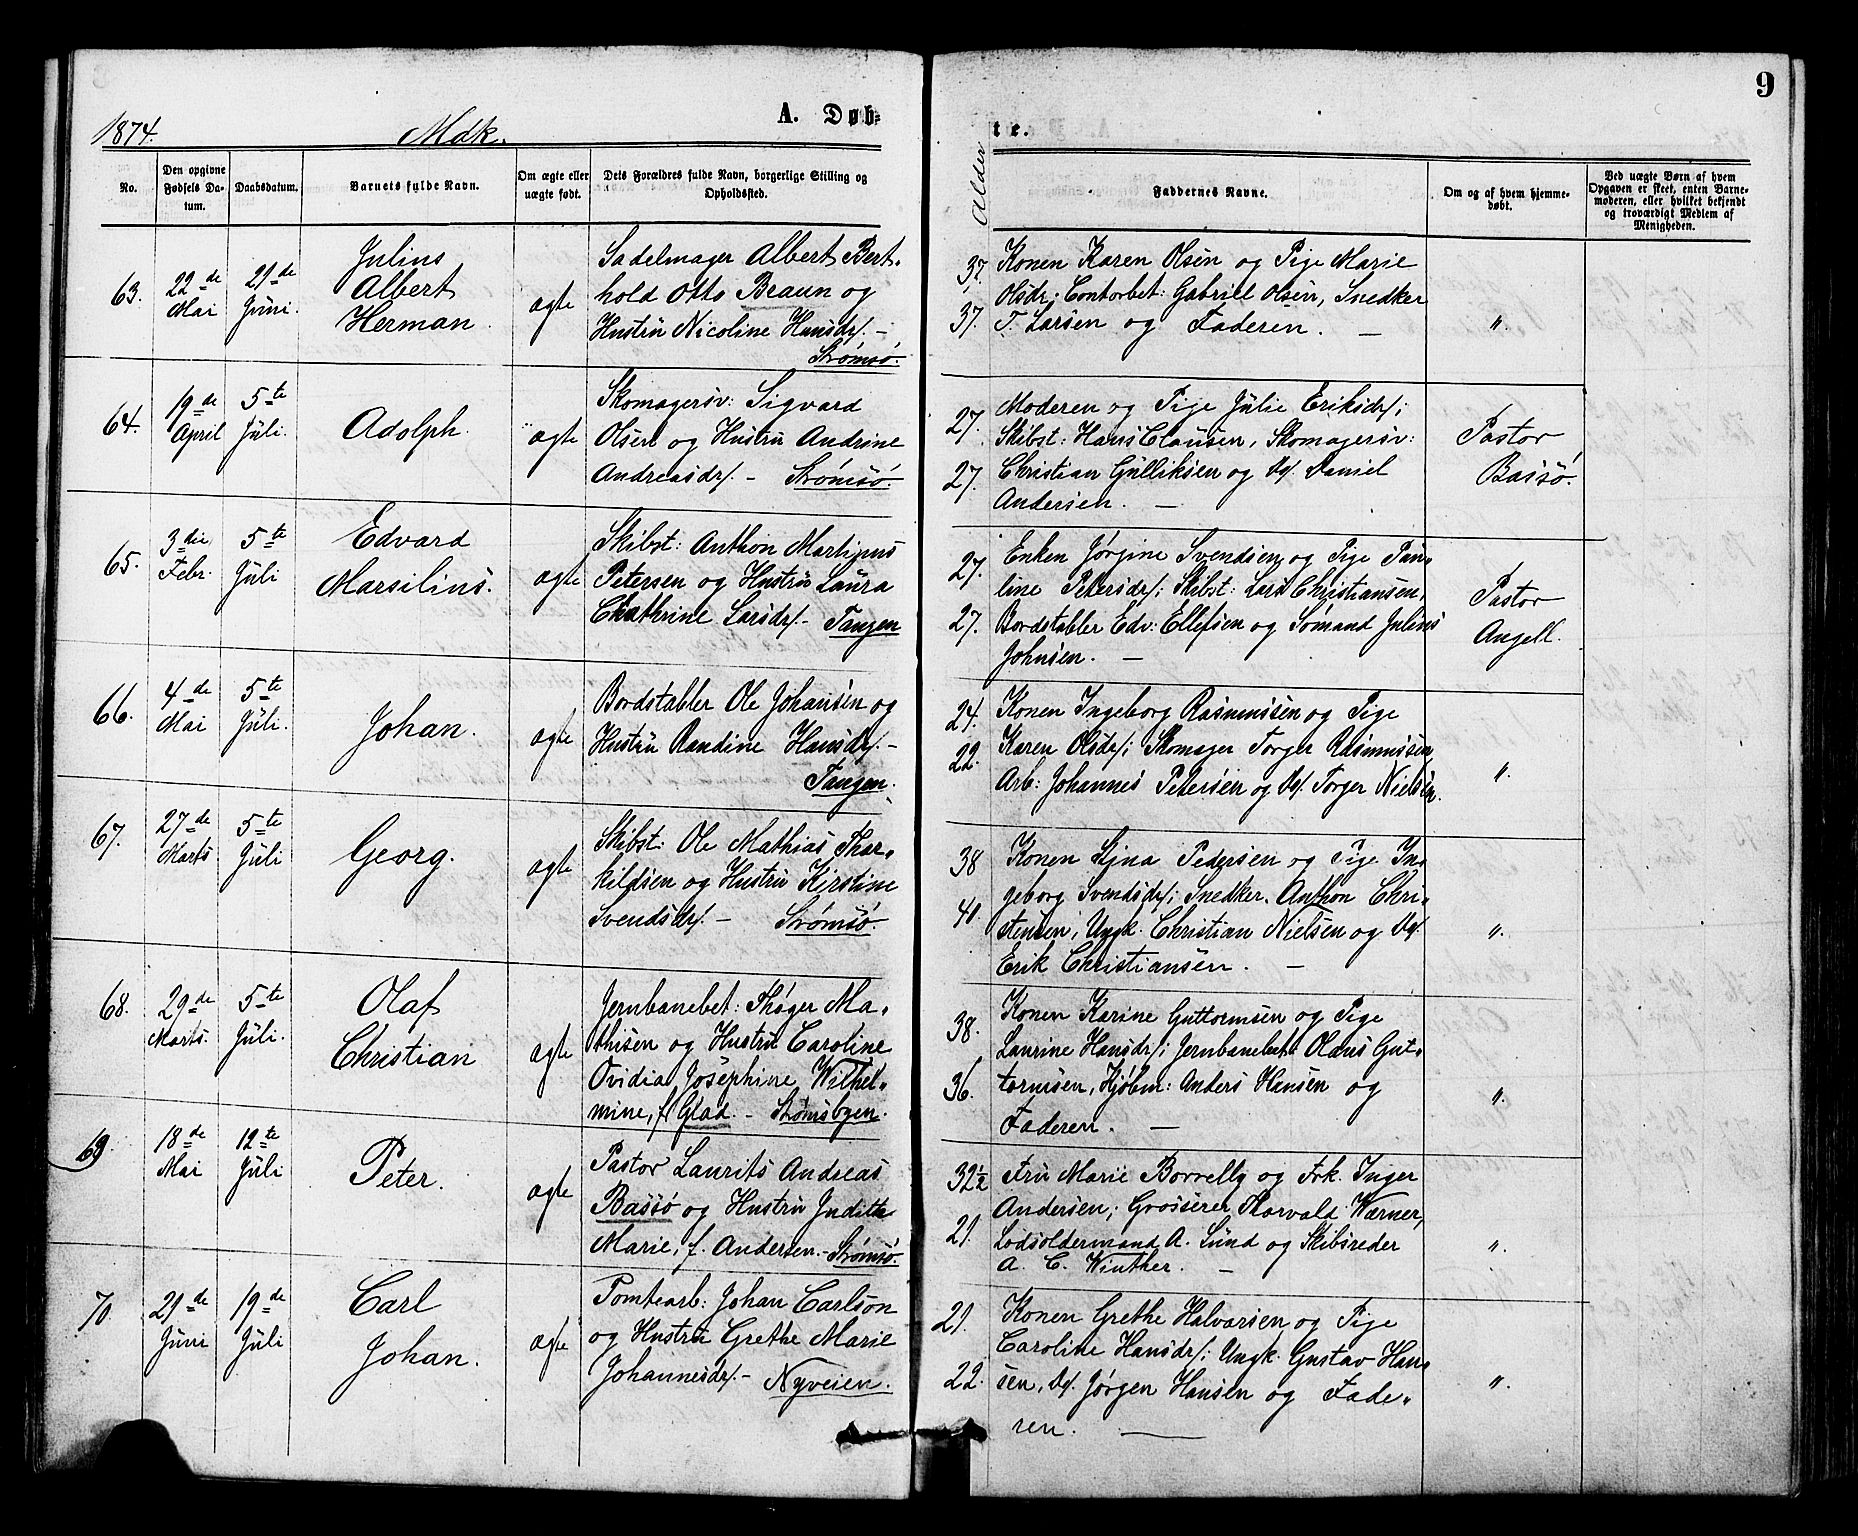 9
1874. Mdk. A. Døb-
te.
Alder
No.
Den opgivne Fødsels Da-tum.
Daabsdatum.
Barnets fulde Navn.
Om ægte eller uægte født.
Dets Forældres fulde Navn, borgerlige Stilling og Opholdssted.
Faddernes Navne.
Om og af hvem hjemme-døbt.
Ved uægte Børn af hvem Opgaven er skeet, enten Barne-moderen, eller hvilket bekjendt og troværdigt Medlem af Menigheden.
63.
22de Mai
21de Juni.
Julius
Albert
Herman.
ægte
Sadelmager Albert Bert-
hold Otto Braun og
Hustru Nicoline Hansdr/. -
Strømsø.
37.
37.
Konen Karen Olsen og Pige Marie
Olsdr; Contorbet: Gabriel Olsen, Snedker
T. Larsen og Faderen. —
"
64.
19de April
5te Juli.
Adolph.
ægte
Skomagersv: Sigvard
Olsen og Hustru Andrine
Andreasdr/. - Strømsø.
27.
27.
Moderen og Pige Julie Eriksdr/;
Skibst: Hans Clausen, Skomagersv:
Christian Gulliksen og Do/. Daniel
Andersen. —
Pastor
Bassø.
65.
3die Febr.
5te Juli
Edvard
Marsilius.
ægte
Skibst: Anthon Martinus
Petersen og Hustru Laura
Chathrine Larsdr/. - Tangen
27.
27.
Enken Jørgine Svendsen og Pige Pau-
line Petersdr/; Skibst: Lars Christiansen,
Bordstabler Edv: Ellefsen og Sømand Julius
Johnsen. —
Pastor
Angell.
66.
4de Mai
5te Juli.
Johan.
ægte
Bordstabler Ole Johansen og
Hustru Randine Hansdr/. -
Tangen.
24.
22.
Konen Ingeborg Rasmussen og Pige
Karen Olsdr/; Skomager Torger Rasmussen,
Arb: Johannes Petersen og Do/. Torger Nielsen.
"
67.
27de Marts
5te Juli
Georg.
ægte
Skibst: Ole Mathias Thor-
kildsen og Hustru Kirstine
Svendsdr/. - Strømsø.
38
41.
Konen Stina Pedersen og Pige In-
geborg Svendsdr/; Snedker. Anthon Chri-
stensen; Ungk. Christian Nielsen og Do/.
Erik Christiansen. —
"
68.
29de Marts.
5te Juli.
Olaf
Christian
ægte
Jernbanebet: Thøger Ma-
thisen og Hustru Caroline
Ovidia Josephine Wilhel-
mine, f. Glad. - Strømsbyen.
38.
36.
Konen Karine Guttormsen og Pige
Laurine Hansdr/; Jernbanebet: Olaus Gut-
tormsen, Kjøbm: Anders Hansen og
Faderen. —
"
69.
18de Mai
12te Juli
Peter.
ægte
Pastor Laurits Andreas
Bassø og Hustru Juditte
Marie, f. Andersen. - Strømsø.
32½
21.
Fru Marie Borrelly og Frk. Inger
Andersen; Grosserer Thorvald Wærner,
Lodsoldermand A. Lund og Skibsreder
A. C. Winther. —
"
70.
21de Juni
19de Juli
Carl
Johan.
ægte
Tomtearb: Johan Carlson
og Hustru Grethe Marie
Johannesdr/. - Nyveien.
21.
22.
Konen Grethe Halvorsen og Pige
Caroline Hansdr/; Ungk. Gustav Han-
sen, Do/. Jørgen Hansen og Fade-
ren. —
"